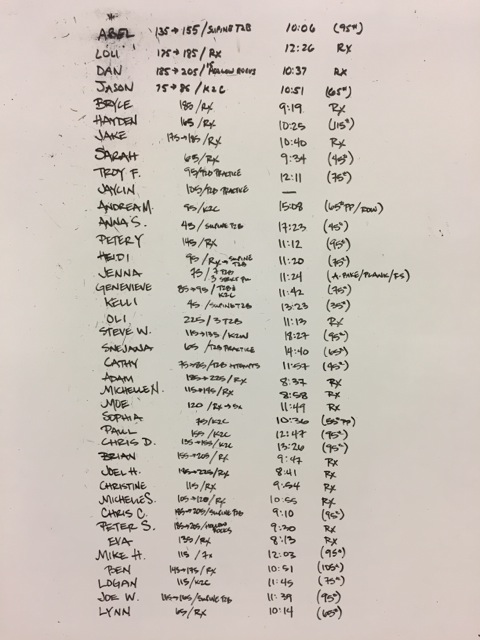 ABEL 135→155/SUPINE T2B 10:06 (95#)
LOLI 175→185/RX 12:26 RX
DAN 185→205/HOLLOW ROCKS 10:37 RX
JASON 75→85/K2C 10:51 (65#)
BRYCE 185/RX 9:19 RX
HAYDEN 165/RX 10:25 (115#)
JAKE 175→185/RX 10:40 RX
SARAH 65/RX 9:34 (45#)
TROY F. 95/T2B PRACTICE 12:11 (75#)
JAYLIN 105/T2B PRACTICE —
ANDREA M. 95/K2C 15:08 (65# PP/ROW)
ANNA S. 45/SUPINE T2B 17:23 (45#)
PETER Y 145/RX 11:12 (95#)
HEIDI 95/RX→SUPINE T2B 11:20 (75#)
JENNA 75/7 T2B 11:24
GENEVIEVE 85→95/T2B K2C 11:42 (75#)
KELLI 45/SUPINE T2B 13:23 (35#)
OLI 225/3 T2B 11:13 RX
STEVE W. 115→135/K2W 18:27 (95#)
SNEJANA 65/T2B PRACTICE 14:40 (65#)
CATHY 75→85/T2B ATTEMPTS 11:57 (45#)
ADAM 185→225/RX 8:37 RX
MICHELLE N. 115→145/RX 8:58 RX
MOE 120/RX→5X 11:49 RX
SOPHIA 75/K2C 10:36 (55# PP)
PAUL 155/K2C 12:47 (95#)
CHRIS D. 135→155/K2C 13:26 (95#)
BRIAN 155→205/RX 9:47 RX
JOEL H. 185→225/RX 8:41 RX
CHRISTINE 115/RX 9:54 RX
MICHELLE S. 105→120/RX 10:55 RX
CHRIS C. 185→205/SUPINE T2B 9:10 (95#)
PETER S. 185→205/HOLLOW ROCKS 9:30 RX
EVA 135/RX 8:13 RX
MIKE H. 115/7X 12:03 (95#)
BEN 145→175/RX 10:51 (105#)
LOGAN 115/K2C 11:45 (75#)
JOE W. 115→165/SUPINE T2B 11:39 (95#)
LYNN 65/RX 10:14 (65#)